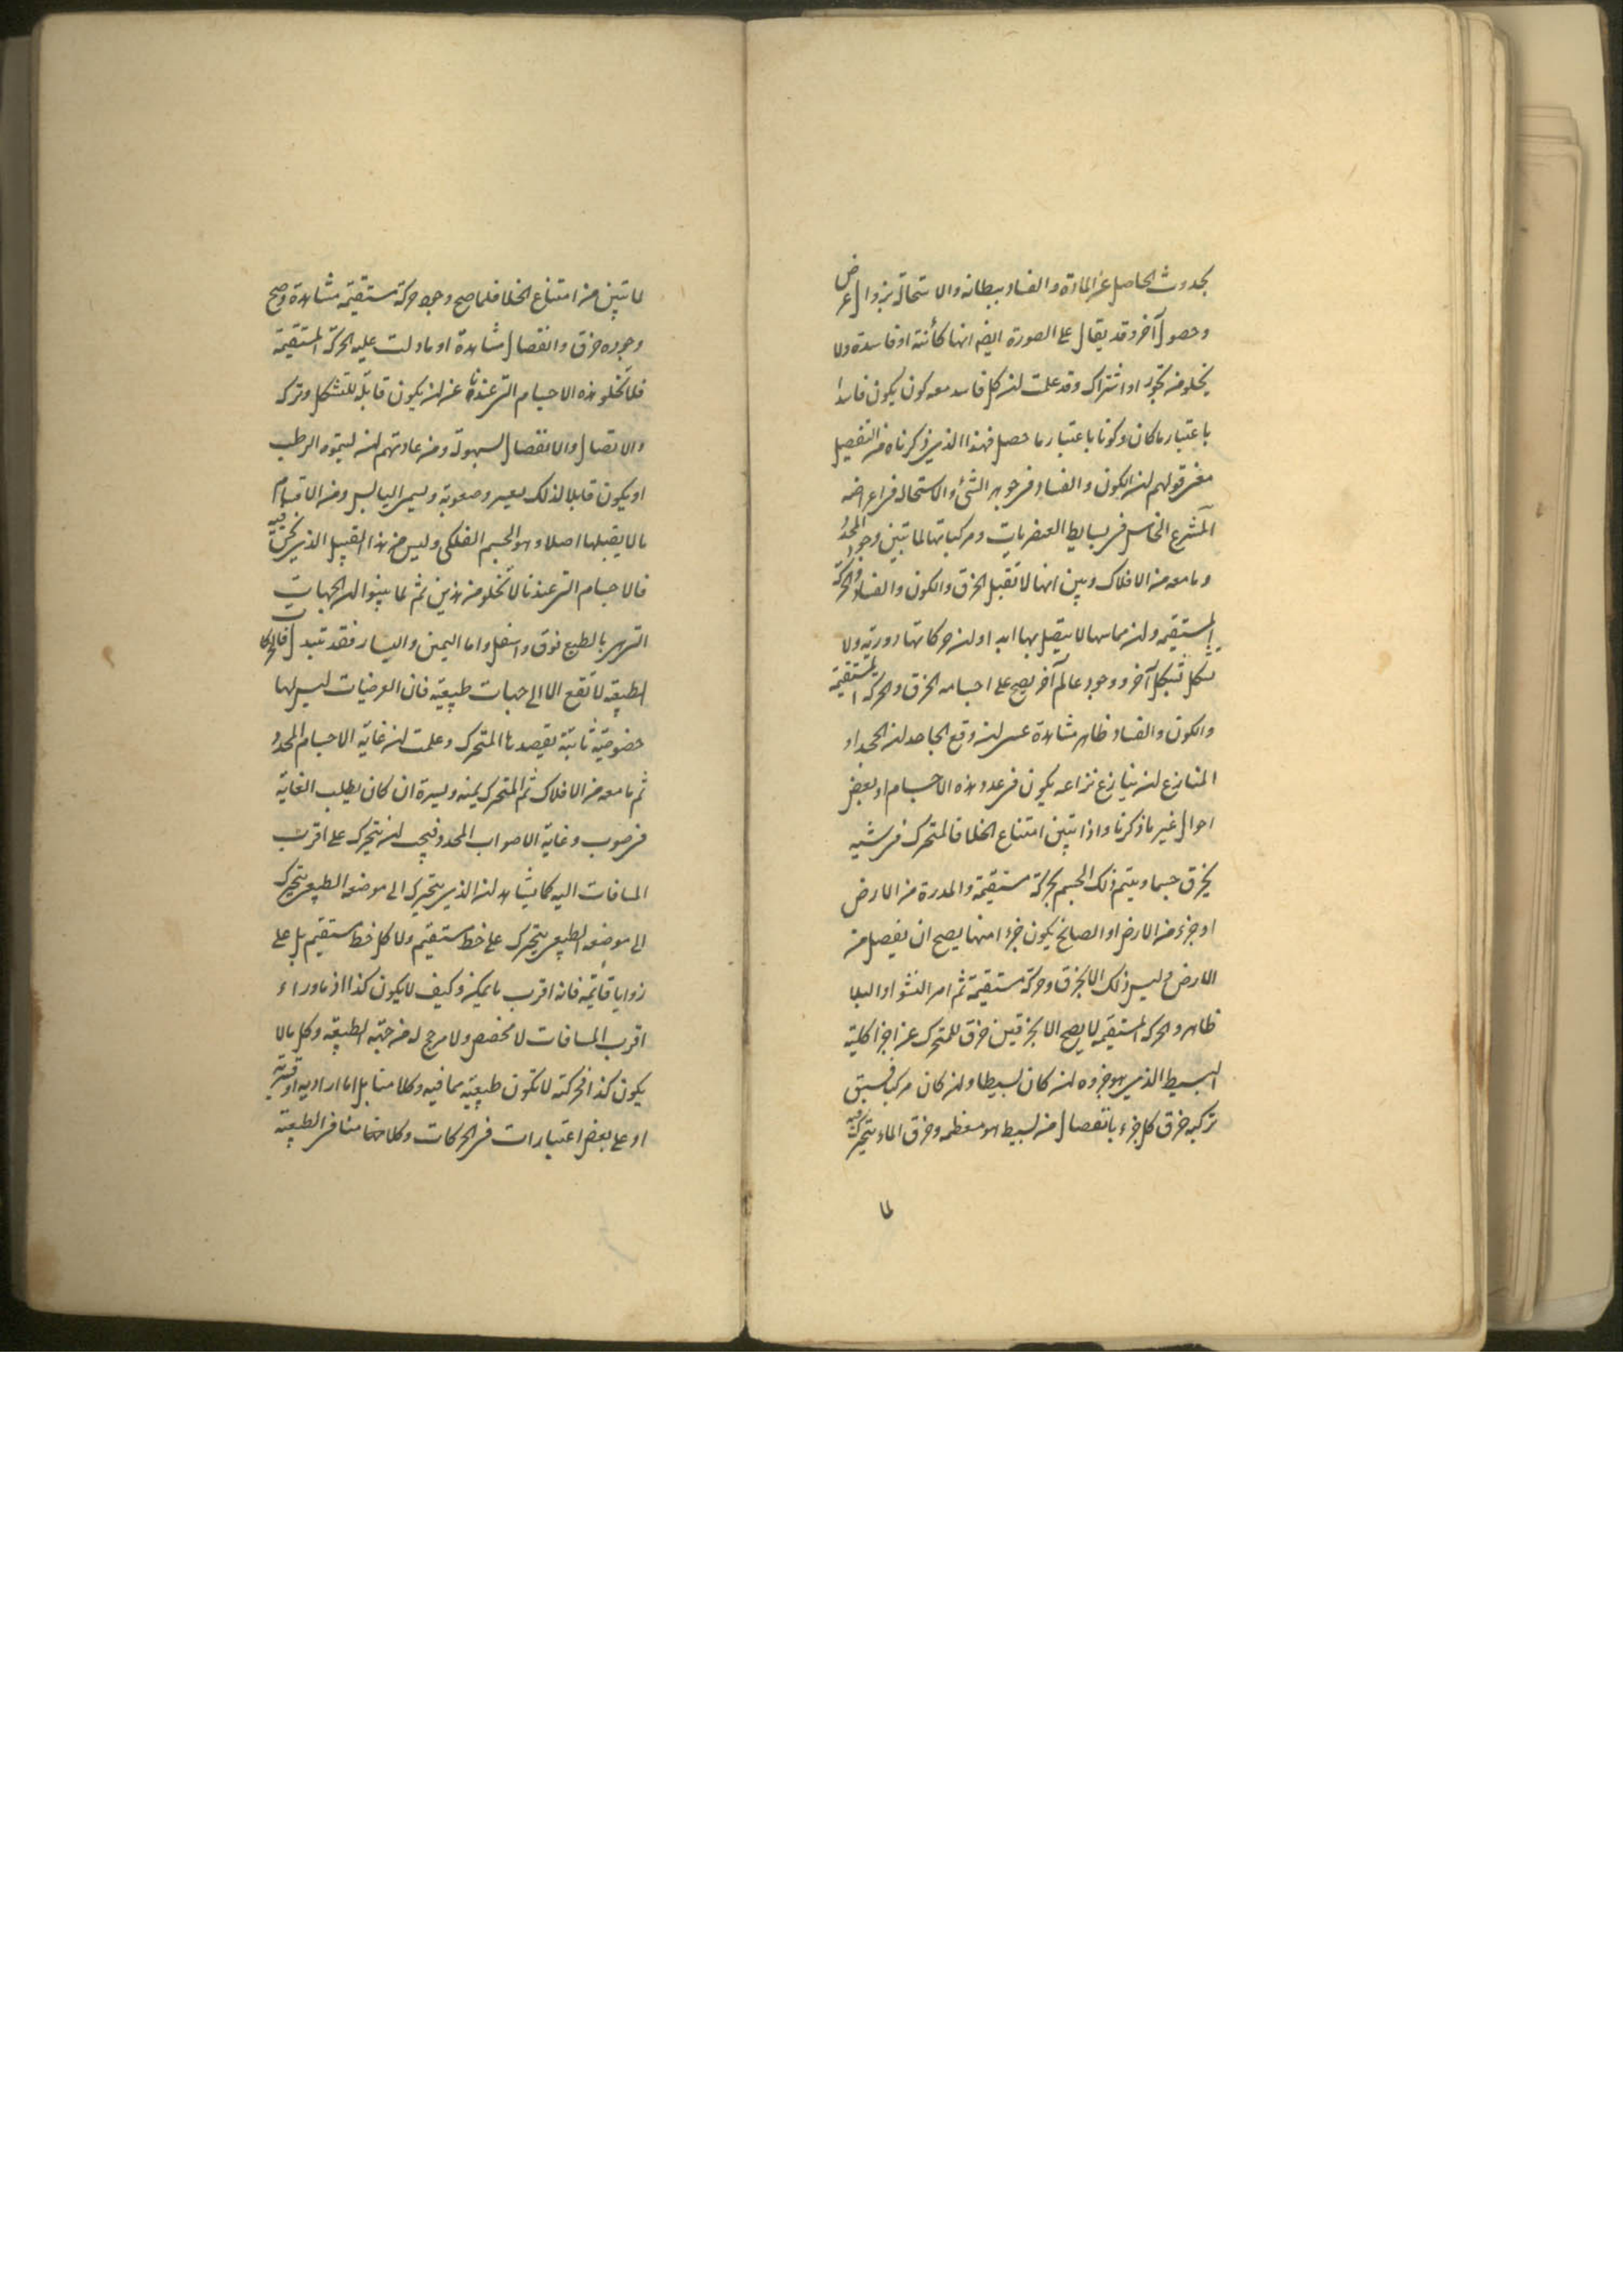 بحدوث الحاصل عن المادة والفساد ببطلانه والاستحالة بزوال عرض
وحصول آخر وقد يقال على الصورة ايضا انها كائنة او فاسدة ولا
يخلو من تجوز او اشتراك وقد علمت ان كل فاسد معه كون يكون فاسدا
باعتبار ما كان وكونا باعتبار ما حصل فهذا الذي ذكرناه من التفصيل
معنى قولهم ان الكون والفساد في جوهر الشئ والاستحالة في اعراضه
المشرع الخامس في بسايط العنصريات ومركباتها لما تبين وجود المحدد
وما معه من الافلاك وبين انها لا تقبل الخرق والكون والفساد والحركة
المستقيمة وان مماسها لا يتصل بها ابدا وان حركاتها دورية ولا
تشكل بشكل آخر ووجود عالم آخر يصح على اجسامه الخرق والحركة المستقيمة
والكون والفساد ظاهر مشاهدة عسى ان وقع الجاحد ان يجحد او
المنازع ان ينازع نزاعه يكون في عدد هذه الاجسام او بعض
احوال غير ما ذكرنا واذا تبين امتناع الخلا فالمتحرك في شيء
يخرق جسما ويتم ذلك الجسم بحركة مستقيمة والمدرة من الارض
او جزء من الارض او الصالح يكون جزءا منها يصح ان يفصل من
الارض وليس ذلك الا بخرق وحركة مستقيمة ثم امر النشو او البلا
ظاهر والحركة المستقيمة لا يصح الا بخرقين خرق للمتحرك عن اجزا كلية
البسيط الذي هو جزوه ان كان بسيطا وان كان مركبا فسبق
تركبه خرق كل جزء بانفصال من بسيط هو معظمه وخرق لما يتحرك فيه
لما
لما تبين من امتناع الخلا فلما صح وجود حركة مستقيمة مشاهدة وصح
وجوده خرق وانفصال مشاهدة او ما دلت عليه الحركة المستقيمة
فلا تخلو هذه الاجسام التي عندنا عن ان يكون قابلة للتشكل وتركه
والاتصال والانفصال بسهولة ومن عادتهم ان يسموه الرطب
او يكون قابلا لذلك بعسر وصعوبة ويسمى اليابس ومن الاقسام
ما لا يقبلها اصلا وهو الجسم الفلكي وليس من هذا القبيل الذي نحن فيه
فالاجسام التي عندنا لا تخلو من هذين ثم لما بينوا ان الجهات
التي هي بالطبع فوق واسفل واما اليمين واليسار فقد تتبدل فالحركات
الطبيعية لا تقع الا الى جهات طبيعية فان العرضيات ليس لها
خصوصية ثابتة يقصدها المتحرك وعلمت ان غاية الاجسام المحدد
ثم ما معه من الافلاك ثم المتحرك يمنه ويسرة ان كان يطلب الغاية
في صوب وغاية الاصواب المحدد فيجب ان يتحرك على اقرب
المسافات اليه كما يشاهد ان الذي يتحرك الى موضعه الطبيعي يتحرك
الى موضعه الطبيعي يتحرك على خط مستقيم ولا كل خط مستقيم بل على
زوايا قائمة فانه اقرب ما يمكن وكيف لا يكون كذا اذ ما وراء
اقرب المسافات لا مخصص ولا مرجح له من جهة الطبيعة وكل ما لا
يكون كذا فحركته لا تكون طبيعية بما فيه وكلا منا بل اما ارادية او قسرية
او على بعض اعتبارات في الحركات وكلامنا في الطبيعية